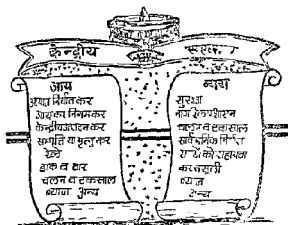 केन्द्रीय सरकार
आय
आयात निर्यात कर
आयकर निगम कर
केन्द्रीय उत्पादन कर
सम्पत्ति या मृत्यु कर
रेल्वे
डाक व तार
चलन व टकसाल
ब्याज अन्य
व्यय
सुरक्षा
चलन व टकसाल
सार्वजनिक निर्माण
राज्यों को सहायता
कर वसूली
ब्याज
अन्य